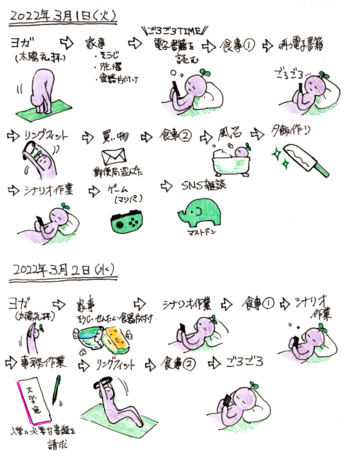 2022年3月1日(火)
ヨガ
(太陽礼拝)
家事
・そうじ
・洗濯
・食器片付け
ごろごろTIME
電子書籍を
読む
食事①
再び電子書籍
ごろごろ〜
リングフィット
買い物
郵便局混んでた
食事②
風呂
夕飯作り
シナリオ作業
ゲーム
SNS雑談
マストドン
2022年3月2日(水)
ヨガ
(太陽礼拝)
家事
そうじ・せんたく・食器片付け
シナリオ作業
食事①
シナリオ
作業
事務作業
リングフィット
食事②
ごろごろ
入学に必要な書類を
請求